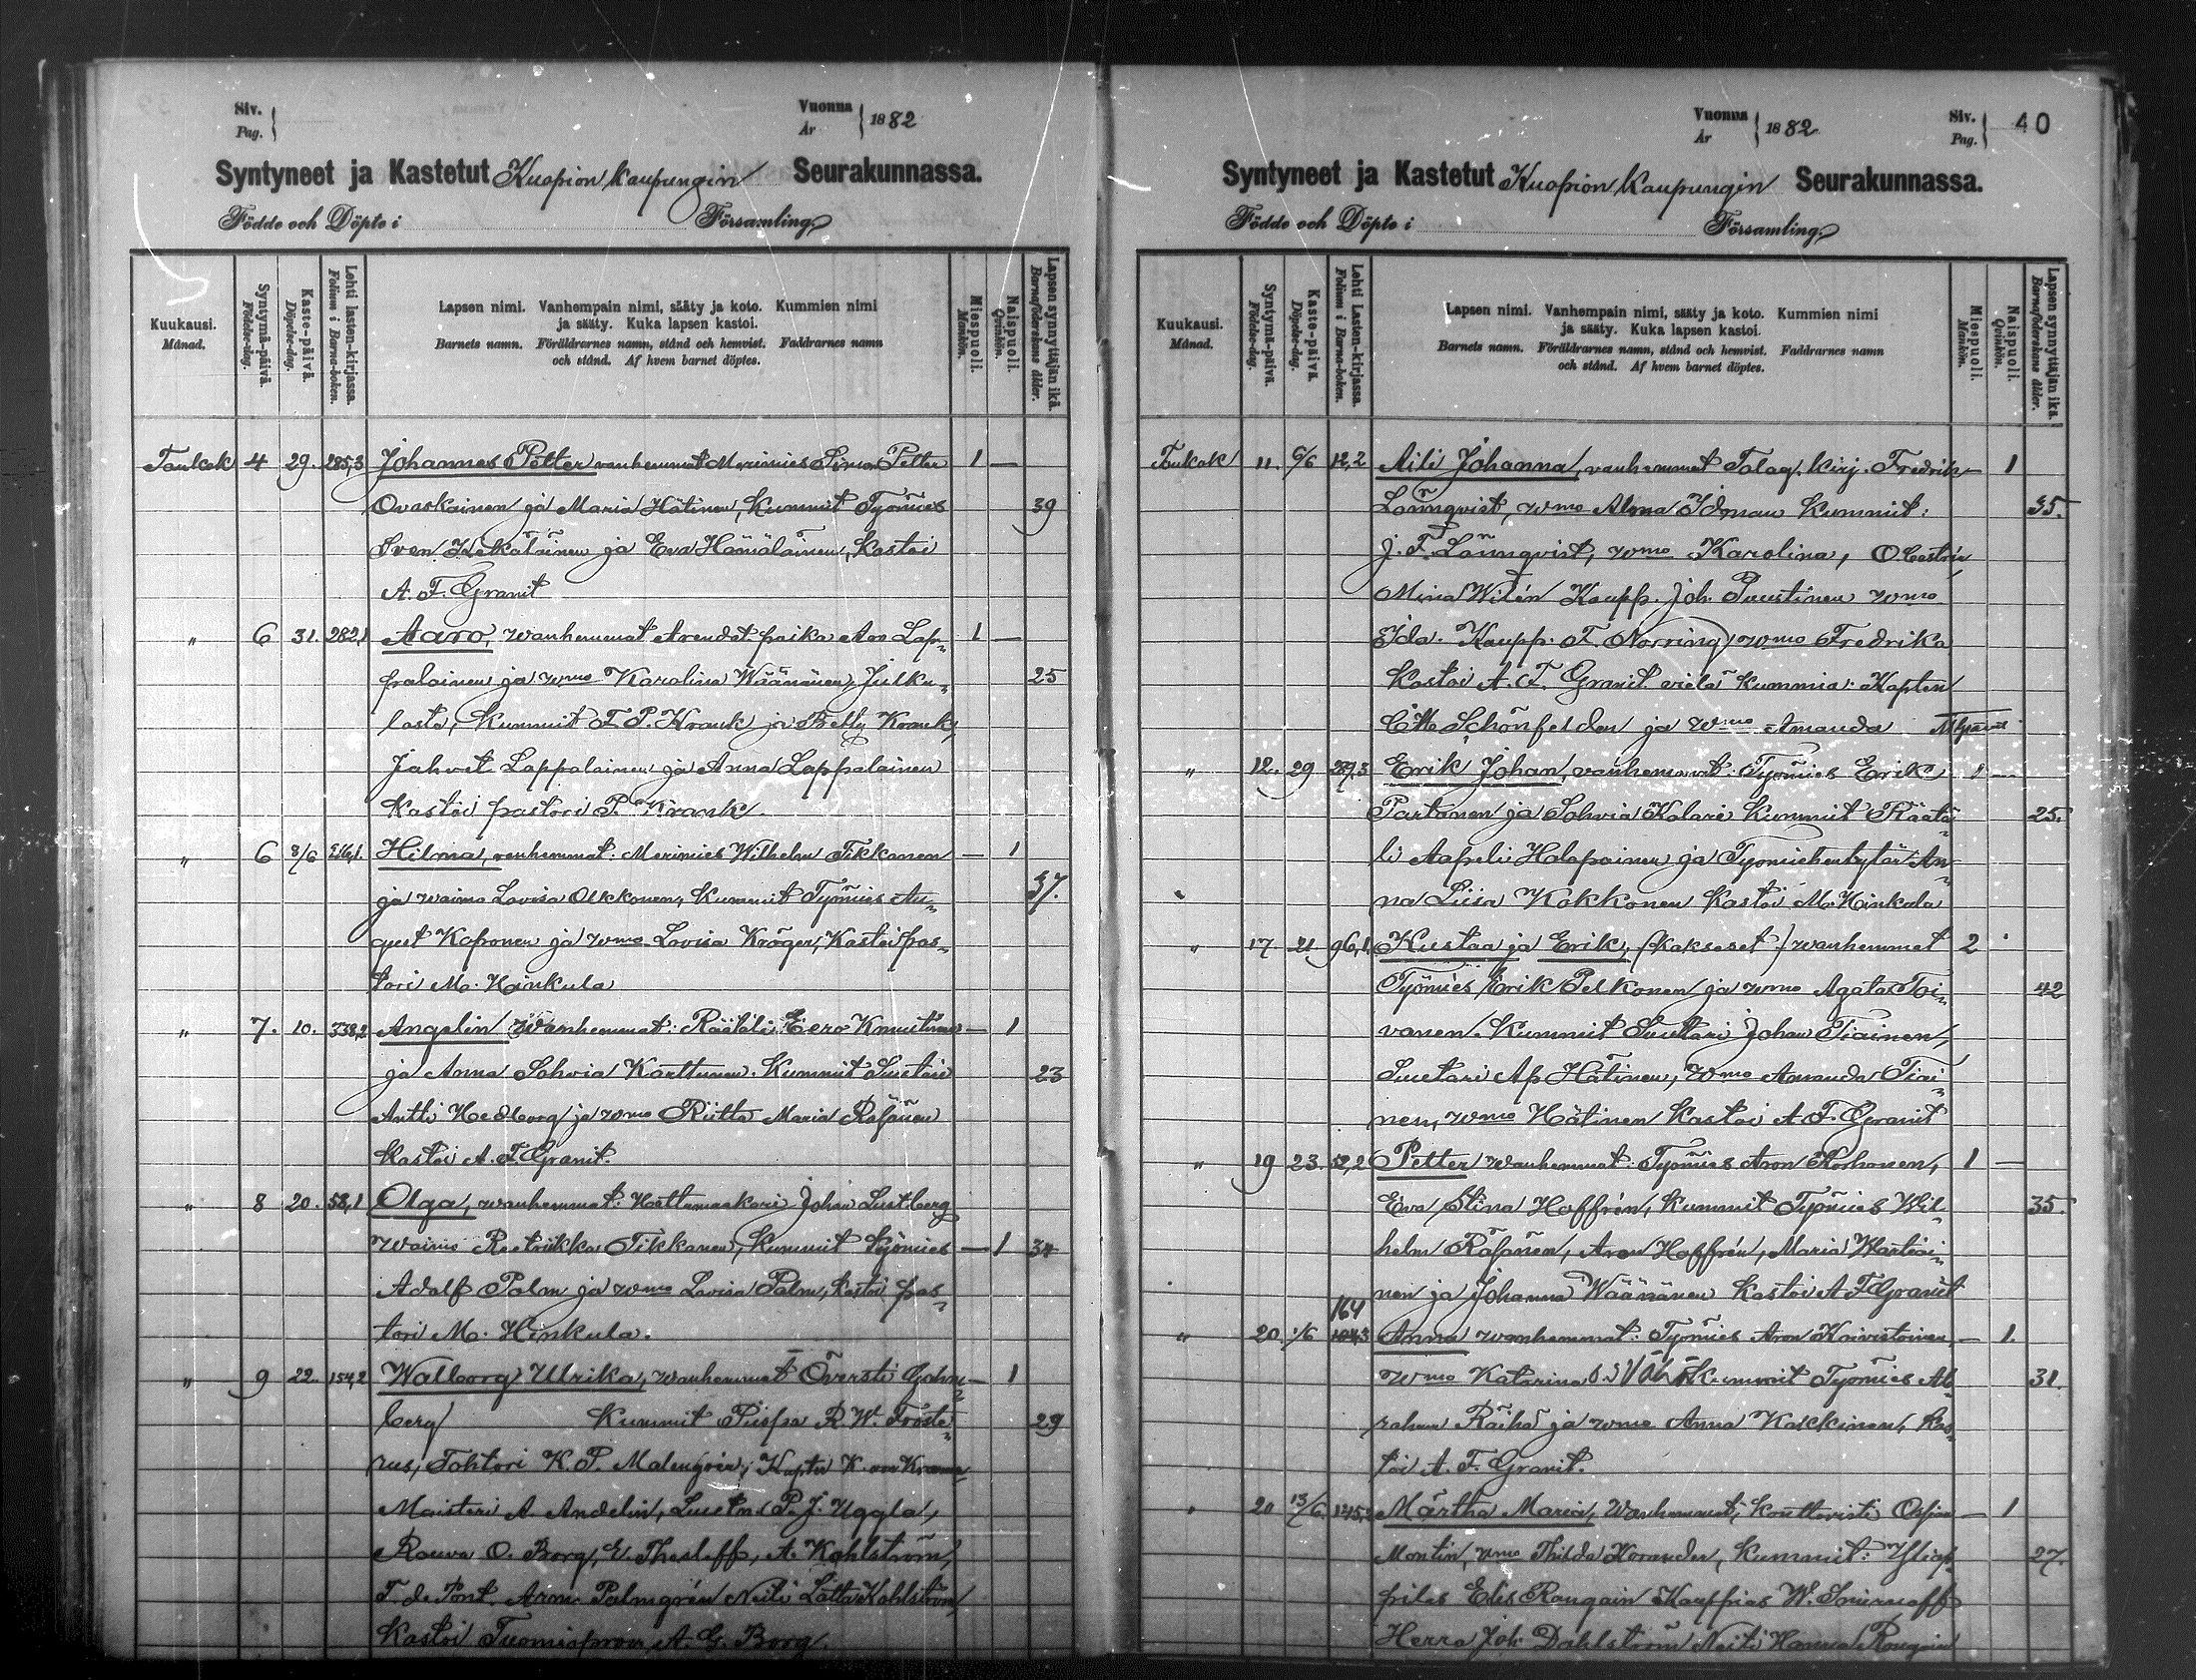 Siv.
Pag.
Vuonna
År
1882
Syntyneet ja Kastetut Kuopion kaupungin Seurakunnassa.
Födde och Döpte i Församling.
Kuukausi.
Månad.
Syntymä-päivä.
Födelse-dag.
Kaste-päivä.
Döpelse-dag.
Lehti lasten-kirjassa.
Folium i Barna-boken.
Lapsen nimi. Vanhempain nimi, sääty ja koto. Kummien nimi
ja sääty. Kuka lapsen kastoi.
Barnets namn. Föräldrarnes namn, stånd och hemvist. Faddrarnes namn
och stånd. Af hvem barnet döptes.
Miespuoli.
Mankön.
Naispuoli.
Qvinkön.
Lapsen synnyttäjän ikä.
Barnaföderskans ålder.
Toukok 4 29. 285,3 Johannes Petter vanhemmat Merimies Simon Petter 1 —
Ovaskainen ja Maria Hätinen, Kummit Työmies 39
Sven ja Eva Hämäläinen, Kastoi
A. F. Granit
" 6 31. 282,1 Aaro, wanhemmat paika Aro Lap- 1 —
palainen ja wmo Karolina Wäänänen, Julku- 25
lasta, Kummit F P. Krank ja Betty Krank,
Jahvet Lappalainen ja Anna Lappalainen
Kastoi pastori P. Krank.
" 6 8/6 Hilma, vanhemmat: Merimies Wilhelm Tikkanen — 1
ja waimo Lovisa Olkkonen, Kummit Työmies Au- 37.
gust Koponen ja wmo Lovisa Kröger, Kastoi pas-
tori M. Hinkula
" 7. 10. 338,2 Angelin Wanhemmat: Räätäli Eero Knuutinen — 1
ja Anna Sohvia Karttunen. Kummit Suutari 23
Antti Hedborg ja wmo Riitta Maria Räsänen
Kastoi A. F. Granit.
" 8 20. 58,1 Olga, wanhemmat: Hattumaakari Johan Lustberg
waimo Reetrikka Tikkanen, Kummit Työmies — 1 34
Adolf Palm ja wmo Lovisa Palm, Kastoi pas-
tori M. Hinkula.
" 9 22. 154,2 Walborg Ulrika, wanhemmat Översti — 1
berg Kummit Piispa R. W. Froste- 29
rus, Tohtori K. P. Malmgrén, Kapten K. von
Maisteri A. Andelin, Luutn. P. J. Uggla,
Rouva O. Borg, E. Thesleff, A. Kahlström,
F. de Pont. Palmgrén Neiti Lotta Kahlström
Kastoi Tuomioprov. A. G. Borg.
Vuonna
År
1882
Siv.
Pag.
40
Syntyneet ja Kastetut Kuopion Kaupungin Seurakunnassa.
Födde och Döpte i Församling.
Kuukausi.
Månad.
Syntymä-päivä.
Födelse-dag.
Kaste-päivä.
Döpelse-dag.
Lehti Lasten-kirjassa.
Folium i Barna-boken.
Lapsen nimi. Vanhempain nimi, sääty ja koto. Kummien nimi
ja sääty. Kuka lapsen kastoi.
Barnets namn. Föräldrarnes namn, stånd och hemvist. Faddrarnes namn
och stånd. Af hvem barnet döptes.
Miespuoli.
Mankön.
Naispuoli.
Qvinkön.
Lapsen synnyttäjän ikä.
Barnaföderskans ålder.
Toukok 11. 6/6 12,2 Aili Johanna, vanhemmat kirj. Fredrik — 1
Lönnqvist, wmo Alma Idman Kummit: 35.
J. F. Lönnqvist, wmo Karolina,
Mina Wilén Kaupp. Joh. Puustinen wmo
Ida. Kaupp. F. Norring, wmo Fredrika
Kastoi A. F. Granit vielä kummia: Kapten
Otto Schönfeldon ja wmo Amanda
" 12. 29 289,3 Erik Johan, vanhemmat: Työmies Erik 1 —
Partanen ja Sohvia Kolari Kummit Räätä- 25.
li Aapeli Halapainen ja Työmiehentytär An-
na Liisa Kokkonen Kastoi M. Hinkula
" 17. 21. 96,1 Kustaa ja Erik, (kaksoset) wanhemmat 2
Työmies Erik Pelkonen ja wmo Agata Toi- 42
vanen. Kummit Suutari Johan Tiainen,
Suutari Ap Hätinen, wmo Amanda Tiai-
nen, wmo Hätinen Kastoi A. F. Granit
" 19 23. 52,2 Petter wanhemmat: Työmies Aron Korhonen, 1 —
Eva Stina Hoffrén, Kummit Työmies Wil- 35.
helm Räsänen, Aron Hoffrén, Maria Wartiai-
nen ja Johanna Wäänänen Kastoi A F Granit
164
" 20. 1/6 Anna wanhemmat: Työmies Aron Koivistoinen, — 1.
wmo Katarina Kummit Työmies Ab- 31.
raham Räihä ja wmo Anna Kokkinen, Kas-
toi A. F. Granit.
" 20 13/6. Märtha Maria, Wanhemmat, konttoristi — 1
Montin, wmo Thilda Kummit: Yliop- 27.
pilas Elis Rongain Kauppias W. Smirnoff
Herra Joh. Dahlström Neiti Hanna Rongain